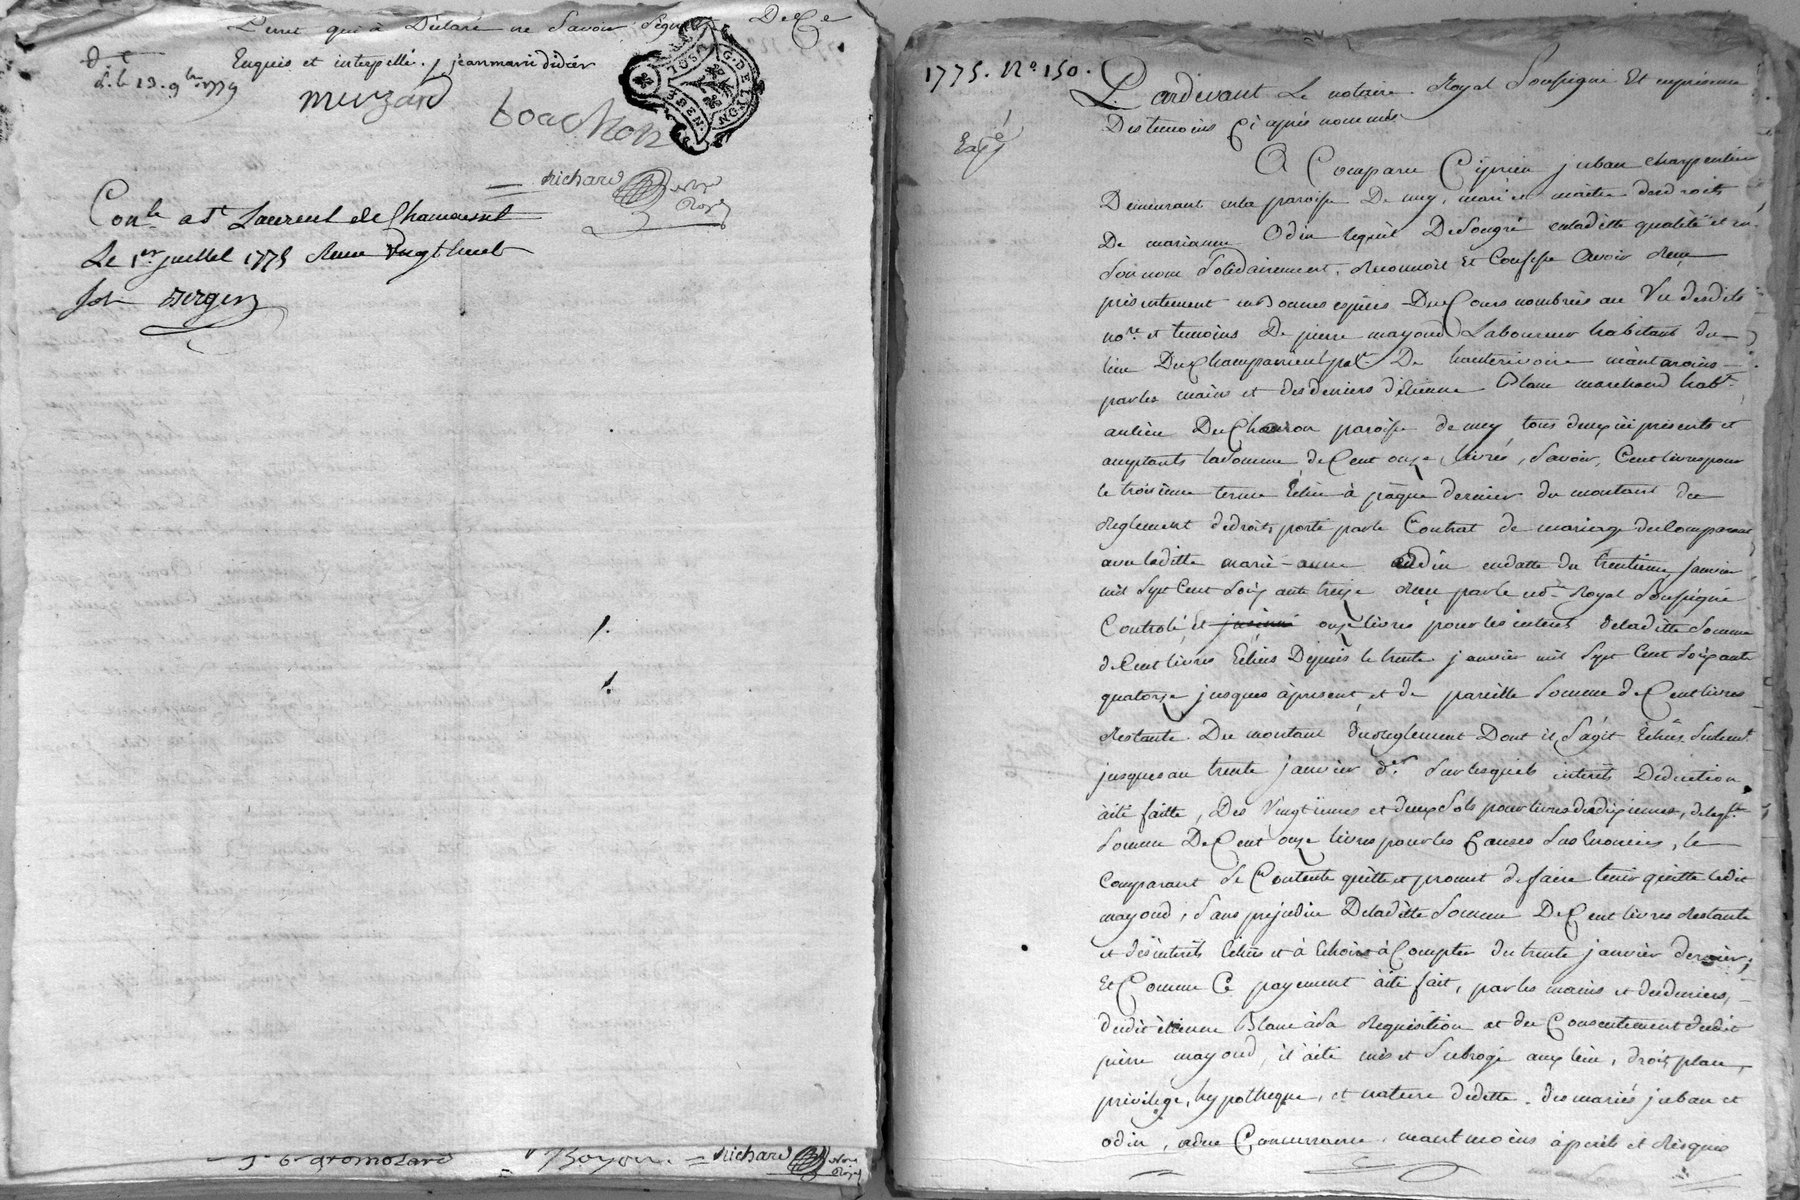 qui a Déclaré ne Savoir Signer De Ce
Enquis et interpellé. jeanmarie didier
d. le 13. 9bre 1779
murzard
boachon
G. DE LYON
Richard notre Royal
Conlé a St Laurent de Chamousset
Le 1er juillet 1775 Reçu vingt huit
sols Berger
J. G. gromolard Boyer Richard notre Royal
1775. No 150.
Expé
Pardevant Le notaire Royal Soussigné Et en présence
Des temoins Ci après nommés
A Comparu Ciprien juban charpentier
Demeurant en la paroisse De mey, mari et maitre des droits
De marianne Odin lequel De Son gré en laditte qualité et en
Son nom Solidairement, Reconnoit Et Confesse Avoir Reçu
présentement en Bonnes espèces Du Cours nombrées au Vu desdits
nore et temoins De pierre mayoud Laboureur habitant du
lieu Du Champ par De hauterivoire
par les mains et des deniers d'étienne Blanc marchand habt
au lieu Du paroisse de mey tous deux ici présents et
acceptants la Somme de Cent onze Livres, Savoir, Cent livres pour
le troisieme terme Echu à pâque dernier du montant du
Reglement de droits porté par le Contrat de mariage du Comparant
avec laditte marie-anne odin en datte du trentieme janvier
mil Sept Cent Soixante treize Reçu par le nore Royal Soussigné
Controlé et onze livres pour les interets de laditte Somme
de Cent livres Echus Depuis le trente janvier mil Sept Cent Soixante
quatorze jusques à present et de pareille Somme de Cent livres
Restante Du montant du Reglement Dont il S'agit Echus Seulemt
jusques au trente janvier der Sur lesquels interets Deduction
à été faitte, Des Vingtiemes et deux Sols pour livres du dixieme, de laqlle
Somme De Cent onze livres pour les Causes Sus Enoncées, le
Comparant Se Contente quitte et promet de faire tenir quitte ledit
mayoud, Sans prejudice De laditte Somme De Cent livres Restante
et des interets Echus et à Echoir à Compter du trente janvier dernier;
Et Comme Ce payement à été fait, par les mains et des deniers,
dudit étienne Blanc à la Requisition et du Consentement dudit
pierre mayoud, il à été mis et Subrogé aux lieu, droit, place,
privilege, hypotheque, et nature de dette des mariés juban et
odin, Concurrance, neantmoins à périls et Risques